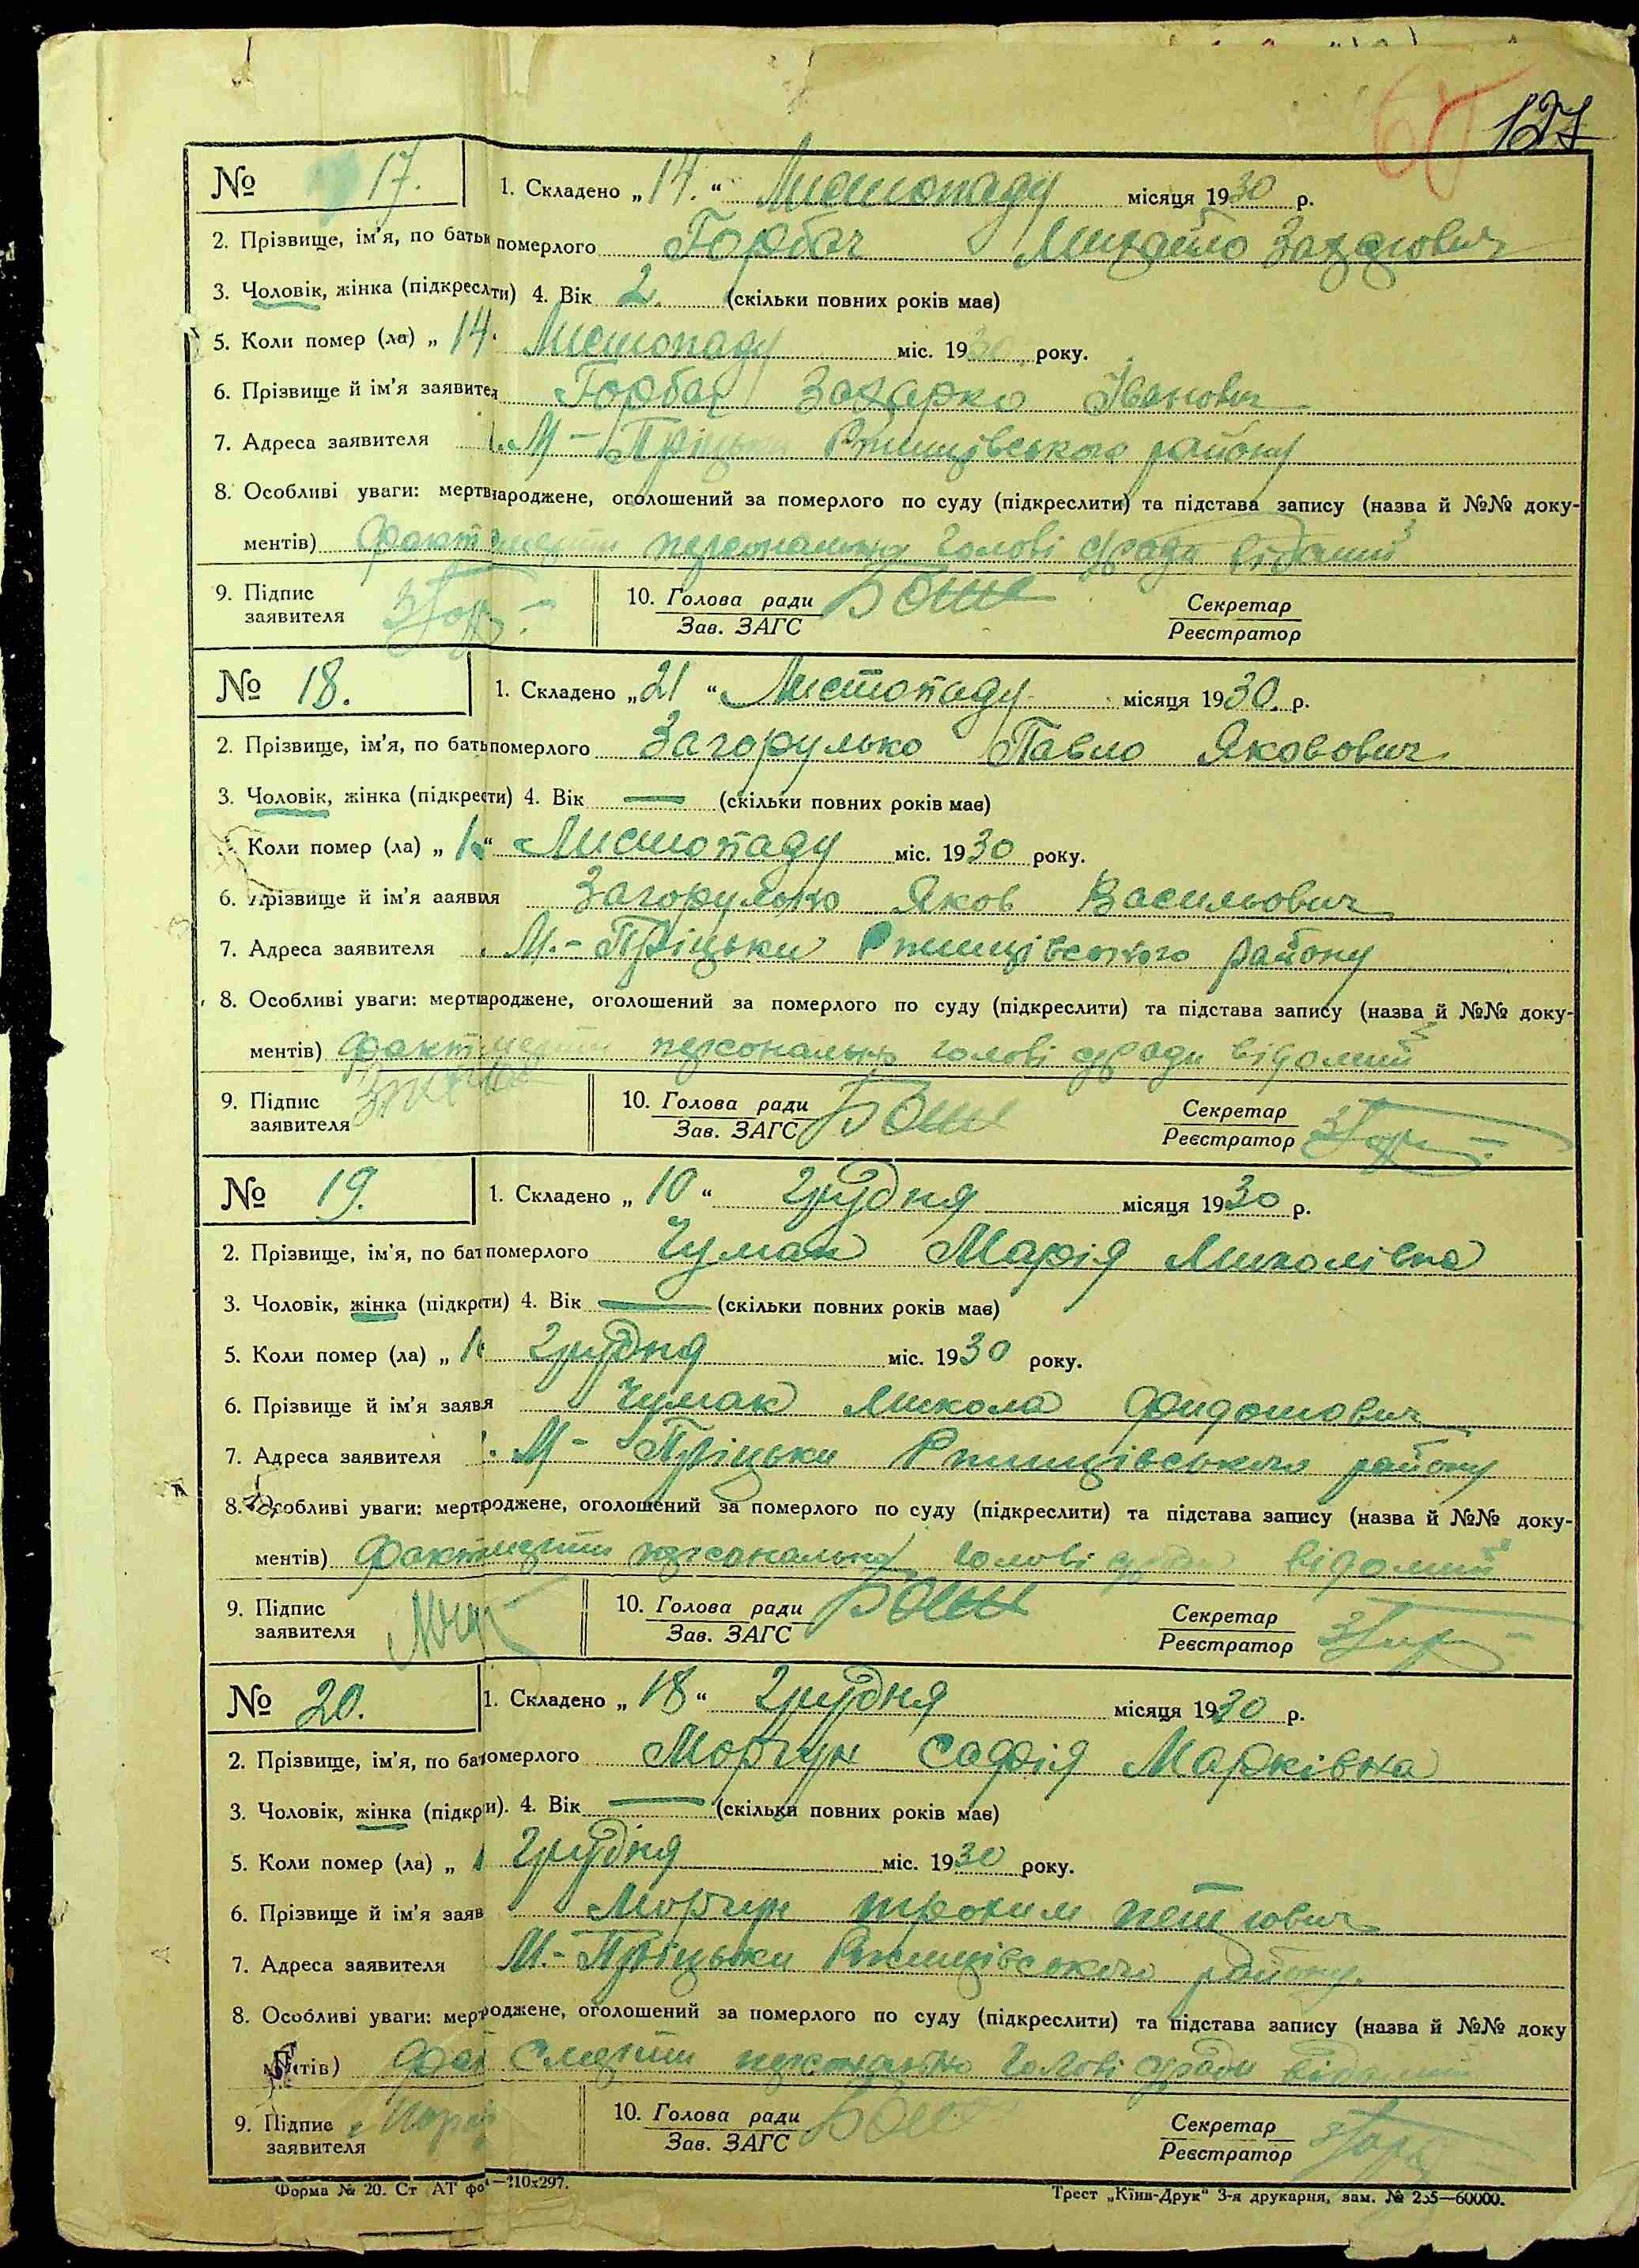 127
№ 17. 1. Складено „14.“ Листопаду місяця 1930 р.
2. Прізвище, ім'я, по батьк померлого Горбач Михайло Захарович
3. Чоловік, жінка (підкресл ти) 4. Вік 2. (скільки повних років має)
5. Коли помер (ла) „ 14. Листопаду міс. 1930 року.
6. Прізвище й ім'я заявител Горбач Захарко Іванович
7. Адреса заявителя М-Пріцьки Ржищівського району
8. Особливі уваги: мертв народжене, оголошений за померлого по суду (підкреслити) та підстава запису (назва й №№ доку-
ментів) Факт смерти персонально голові с/ради відомий
9. Підпис
заявителя
10. Голова ради
Зав. ЗАГС
Секретар
Реєстратор
№ 18. 1. Складено „21“ Листопаду місяця 1930. р.
2. Прізвище, ім'я, по бать померлого Загорулько Павло Якович
3. Чоловік, жінка (підкре сти) 4. Вік — (скільки повних років має)
Коли помер (ла) „ “ Листопаду міс. 1930 року.
6. Прізвище й ім'я заяви я Загорулько Яков Васильович
7. Адреса заявителя М.-Пріцьки Ржищівського району
8. Особливі уваги: мерт народжене, оголошений за померлого по суду (підкреслити) та підстава запису (назва й №№ доку-
ментів) Факт смерти персонально голові с/ради відомий
9. Підпис
заявителя
10. Голова ради
Зав. ЗАГС
Секретар
Реєстратор
№ 19. 1. Складено „10“ Грудня місяця 1930 р.
2. Прізвище, ім'я, по бат померлого Чумак Марія Миколівна
3. Чоловік, жінка (підкр сти) 4. Вік — (скільки повних років має)
5. Коли помер (ла) „ Грудня міс. 1930 року.
6. Прізвище й ім'я заяв я Чумак Микола Федотович
7. Адреса заявителя М-Пріцьки Ржищівського району
8. Особливі уваги: мерт роджене, оголошений за померлого по суду (підкреслити) та підстава запису (назва й №№ доку-
ментів) Факт смерти персонально голові с/ради відомий
9. Підпис
заявителя
10. Голова ради
Зав. ЗАГС
Секретар
Реєстратор
№ 20. 1. Складено „18“ Грудня місяця 1930 р.
2. Прізвище, ім'я, по ба померлого Моргун Софія Марківна
3. Чоловік, жінка (підкр и). 4. Вік — (скільки повних років має)
5. Коли помер (ла) „ Грудня міс. 1930 року.
6. Прізвище й ім'я заяв Моргун Трохим
7. Адреса заявителя М.-Пріцьки Ржищівського району.
8. Особливі уваги: мер роджене, оголошений за померлого по суду (підкреслити) та підстава запису (назва й №№ доку
ментів) Факт смерти персонально голові с/ради відомий
9. Підпис
заявителя
10. Голова ради
Зав. ЗАГС
Секретар
Реєстратор
Форма № 20. Ст АТ фо —210х297. Трест „Київ-Друк“ 3-я друкарня, зам. № 255—60000.